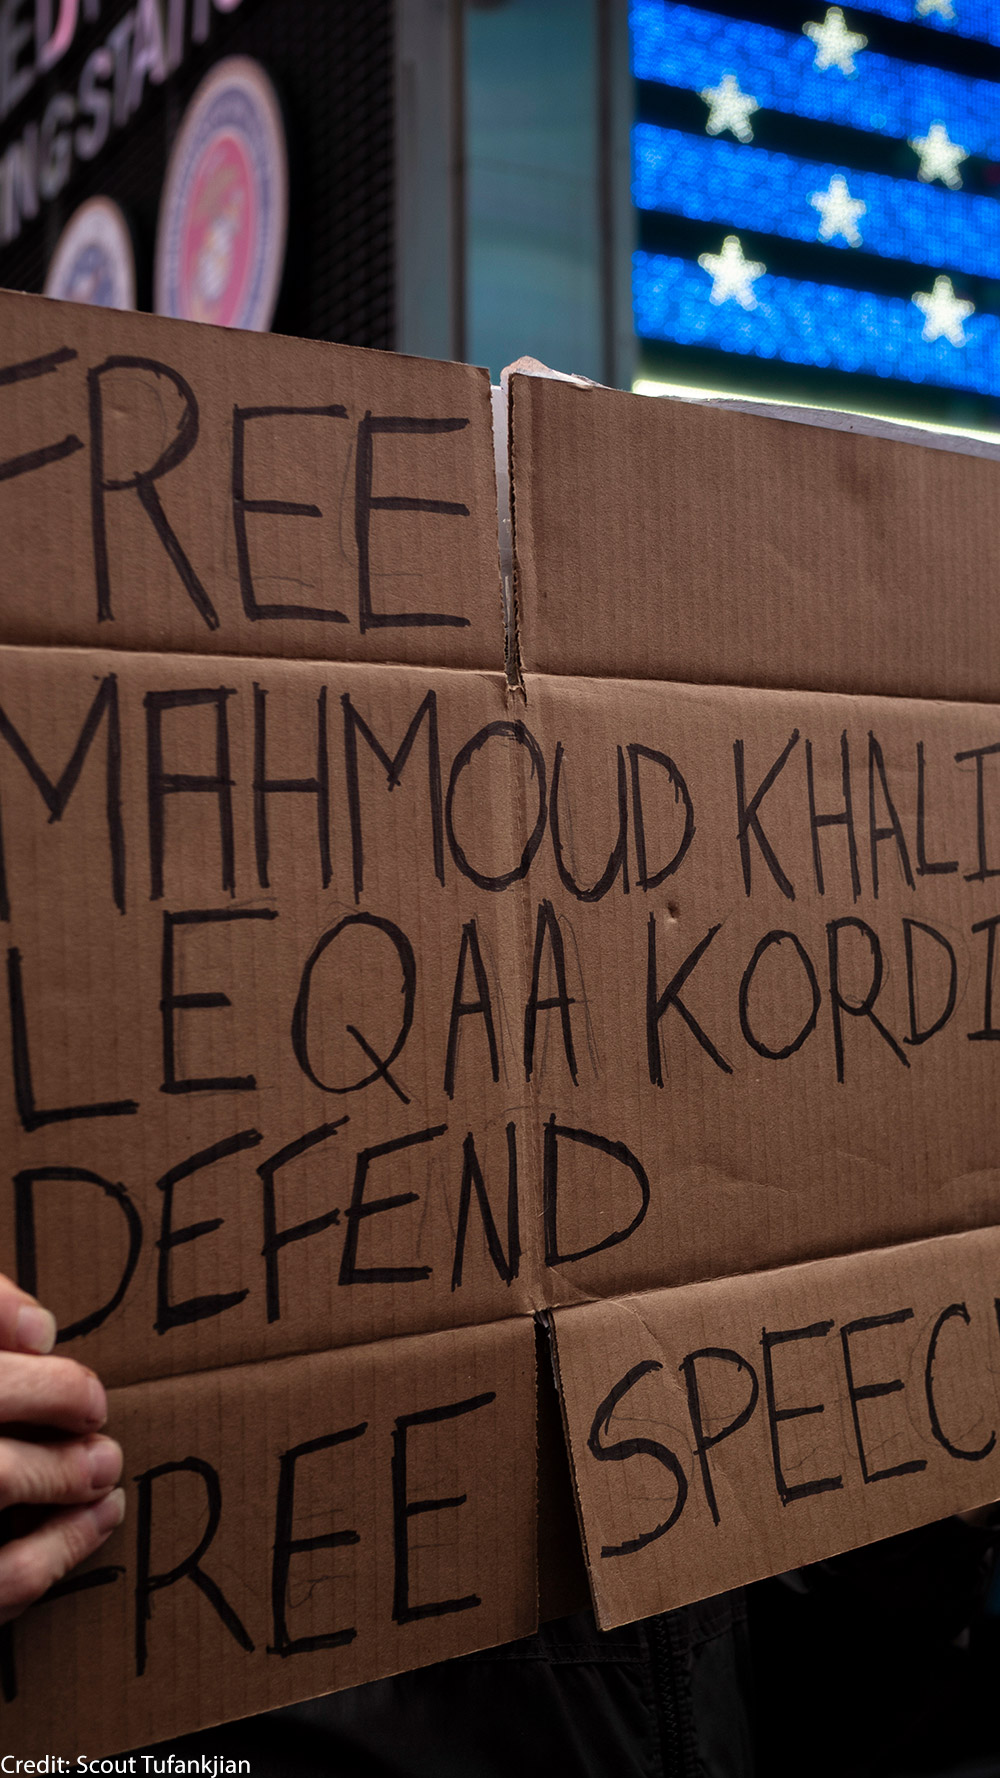 FREE
MAHMOUD KHALI
LEQAA KORDI
DEFEND
FREE SPEEC
Credit: Scout Tufankjian